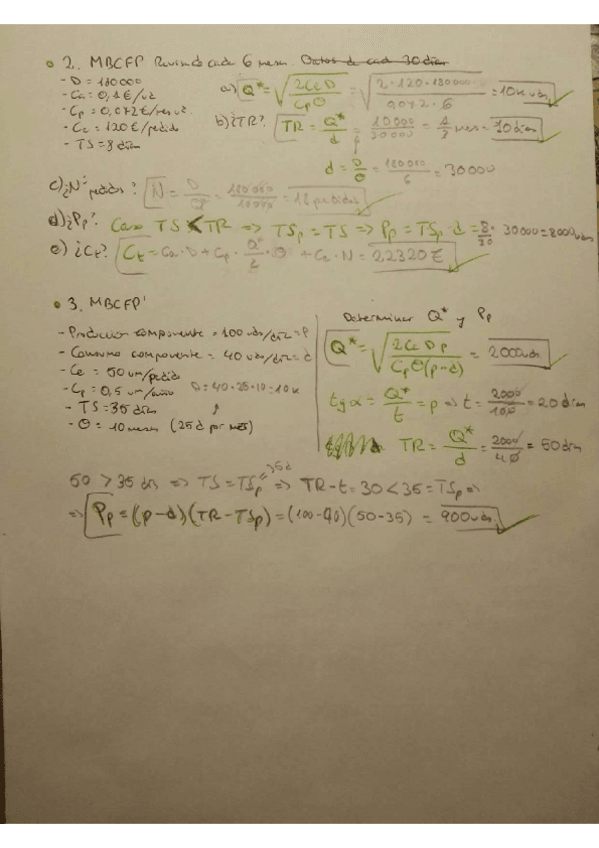 2. MBCFP Revisando cada 6 meses. Datos de cada 30 días
- D = 180000
- Ca = 0,1 €/ud
- Cp = 0,072 €/mes ud.
- Ce = 120 €/pedido
- TS = 8 días
a) Q* = √(2CeD / CpΘ) = √(2·120·180000 / 0,072·6) = 10k uds
b) ¿TR? TR = Q*/d = 10000/30000 = 1/3 mes = 10 días
d = D/Θ = 180000/6 = 30000
c) ¿Nº pedidos? N = D/Q* = 180000/10000 = 18 pedidos
d) ¿Pp? Como TS < TR => TSp = TS => Pp = TSp · d = 8/30 · 30000 = 8000 uds
e) ¿Ct? Ct = Ca·D + Cp · Q*/2 · Θ + Ce·N = 22320 €
3. MBCFP'
- Produccion componente = 100 uds/día = p
- Consumo componente = 40 uds/día = d
- Ce = 50 um/pedido
- Cp = 0,5 um/
D = 40·25·10 = 10k
- TS = 35 días
- Θ = 10 meses (25d por mes)
Determinar Q* y Pp
Q* = √(2CeDp / CpΘ(p-d)) = 2000 uds
tg α = Q*/t = p => t = 2000/100 = 20 días
TR = Q*/d = 2000/40 = 50 días
50 > 35 días => TS = TSp = 35d => TR - t = 30 < 35 = TSp =>
=> Pp = (p-d)(TR-TSp) = (100-40)(50-35) = 900 uds.